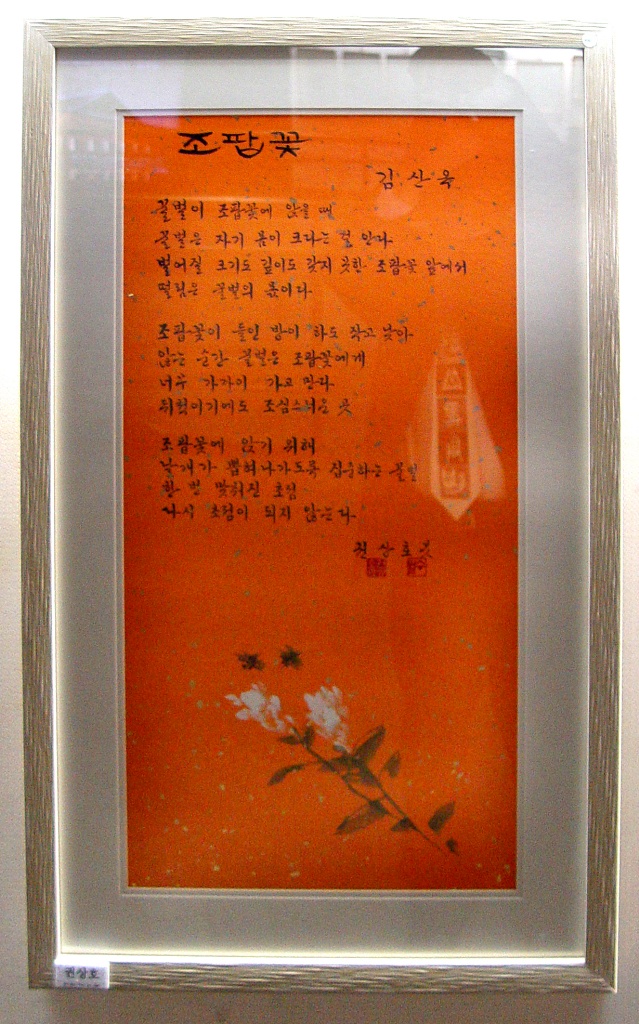 조팝꽃
김산옥
꿀벌이 조팝꽃에 앉을 때
꿀벌은 자기 몸이 크다는 걸 안다
벌어질 크기도 깊이도 갖지 못한 조팝꽃 앞에서
떨림은 꿀벌의 몫이다
조팝꽃이 들인 방이 하도 작고 낮아
앉는 순간 꿀벌은 조팝꽃에게
너무 가까이 가고 만다
뒤척이기에도 조심스러운 곳
조팝꽃에 앉기 위해
날개가 뽑혀나가도록 집중하는 꿀벌
한 번 맞춰진 초점
다시 초점이 되지 않는다
권상호 붓
권상호